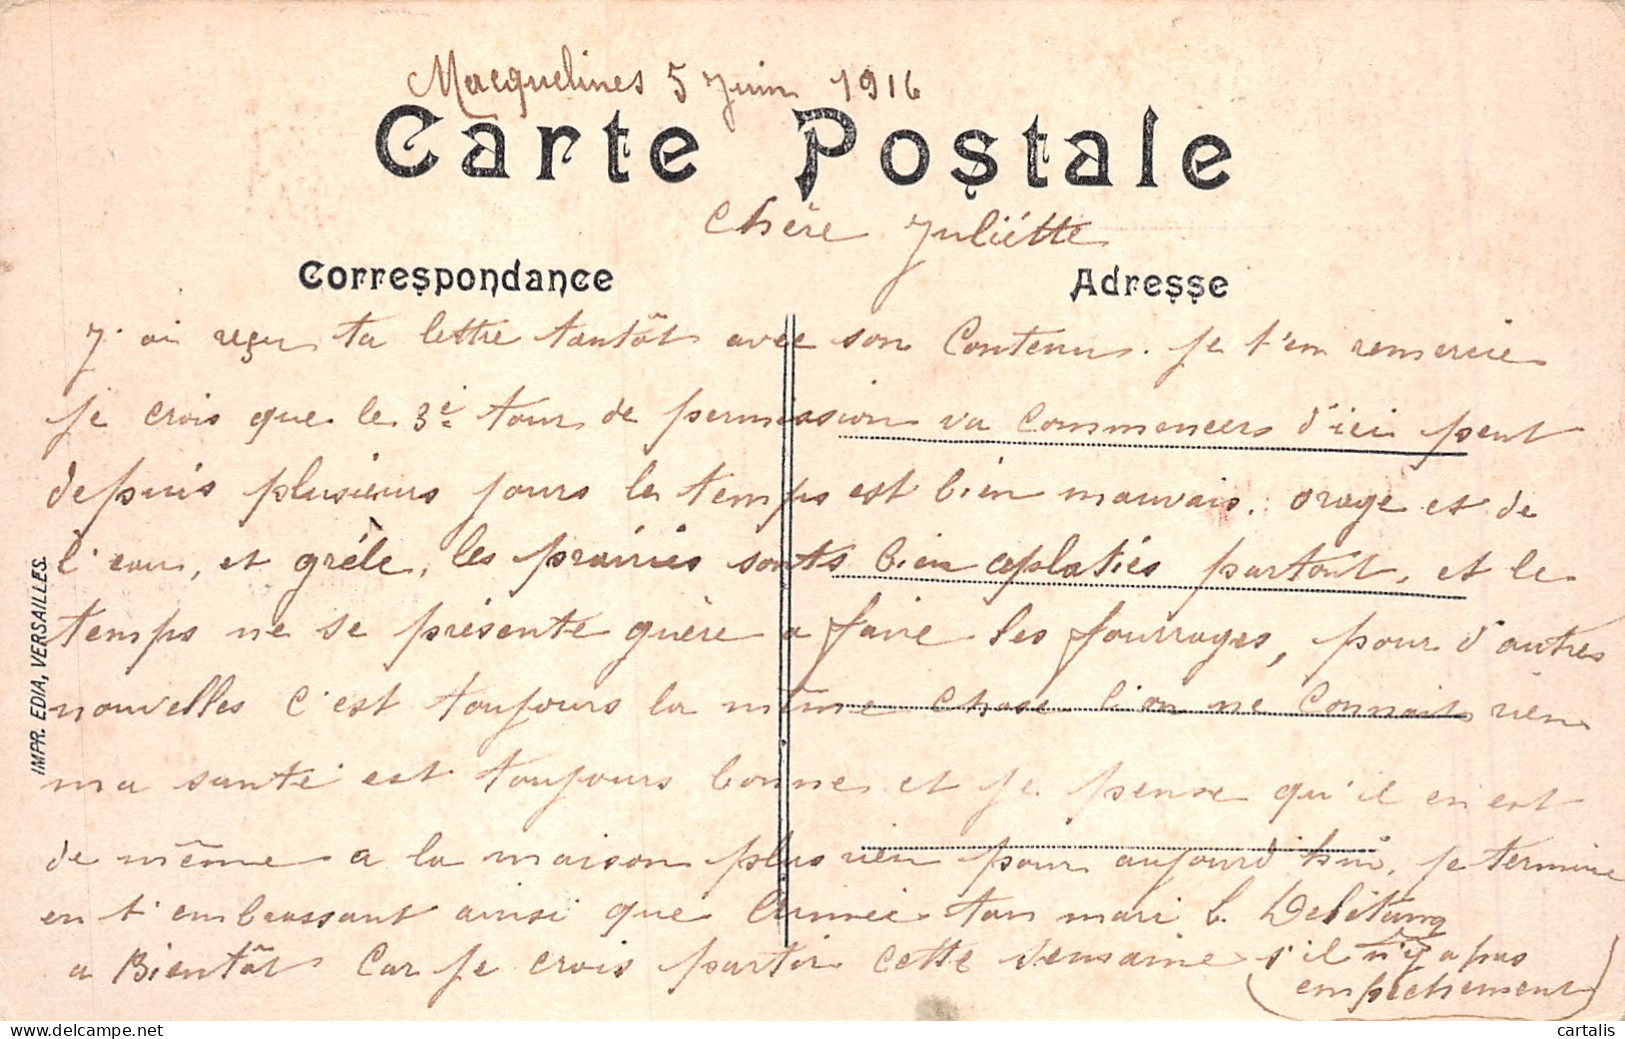 Macquelines 5 Juin 1916
Carte Postale
Chère Juliétte
Correspondance
Adresse
J'ai reçu ta lettre tantôt avec son Contenu. je t'en remercie
je crois que le 3e tour de permission va commencer d'ici peut
depuis plusieurs jours le temps est bien mauvais. orage et de
l'eau, et grêle, les prairies sonts bien aplaties partout, et le
temps ne se présente guère a faire les fourrages, pour d'autres
nouvelles C'est toujours la même chose l'on ne Connait rien
ma santé est toujours bonne et je pense qu'il en est
de même a la maison plus rien pour aujourd'hui, je termine
en t'embrassant ainsi que ton mari
a Bientôt Car je crois partir cette semaine s'il n'y a pas
empêchement
IMPR. EDIA, VERSAILLES.
cartalis